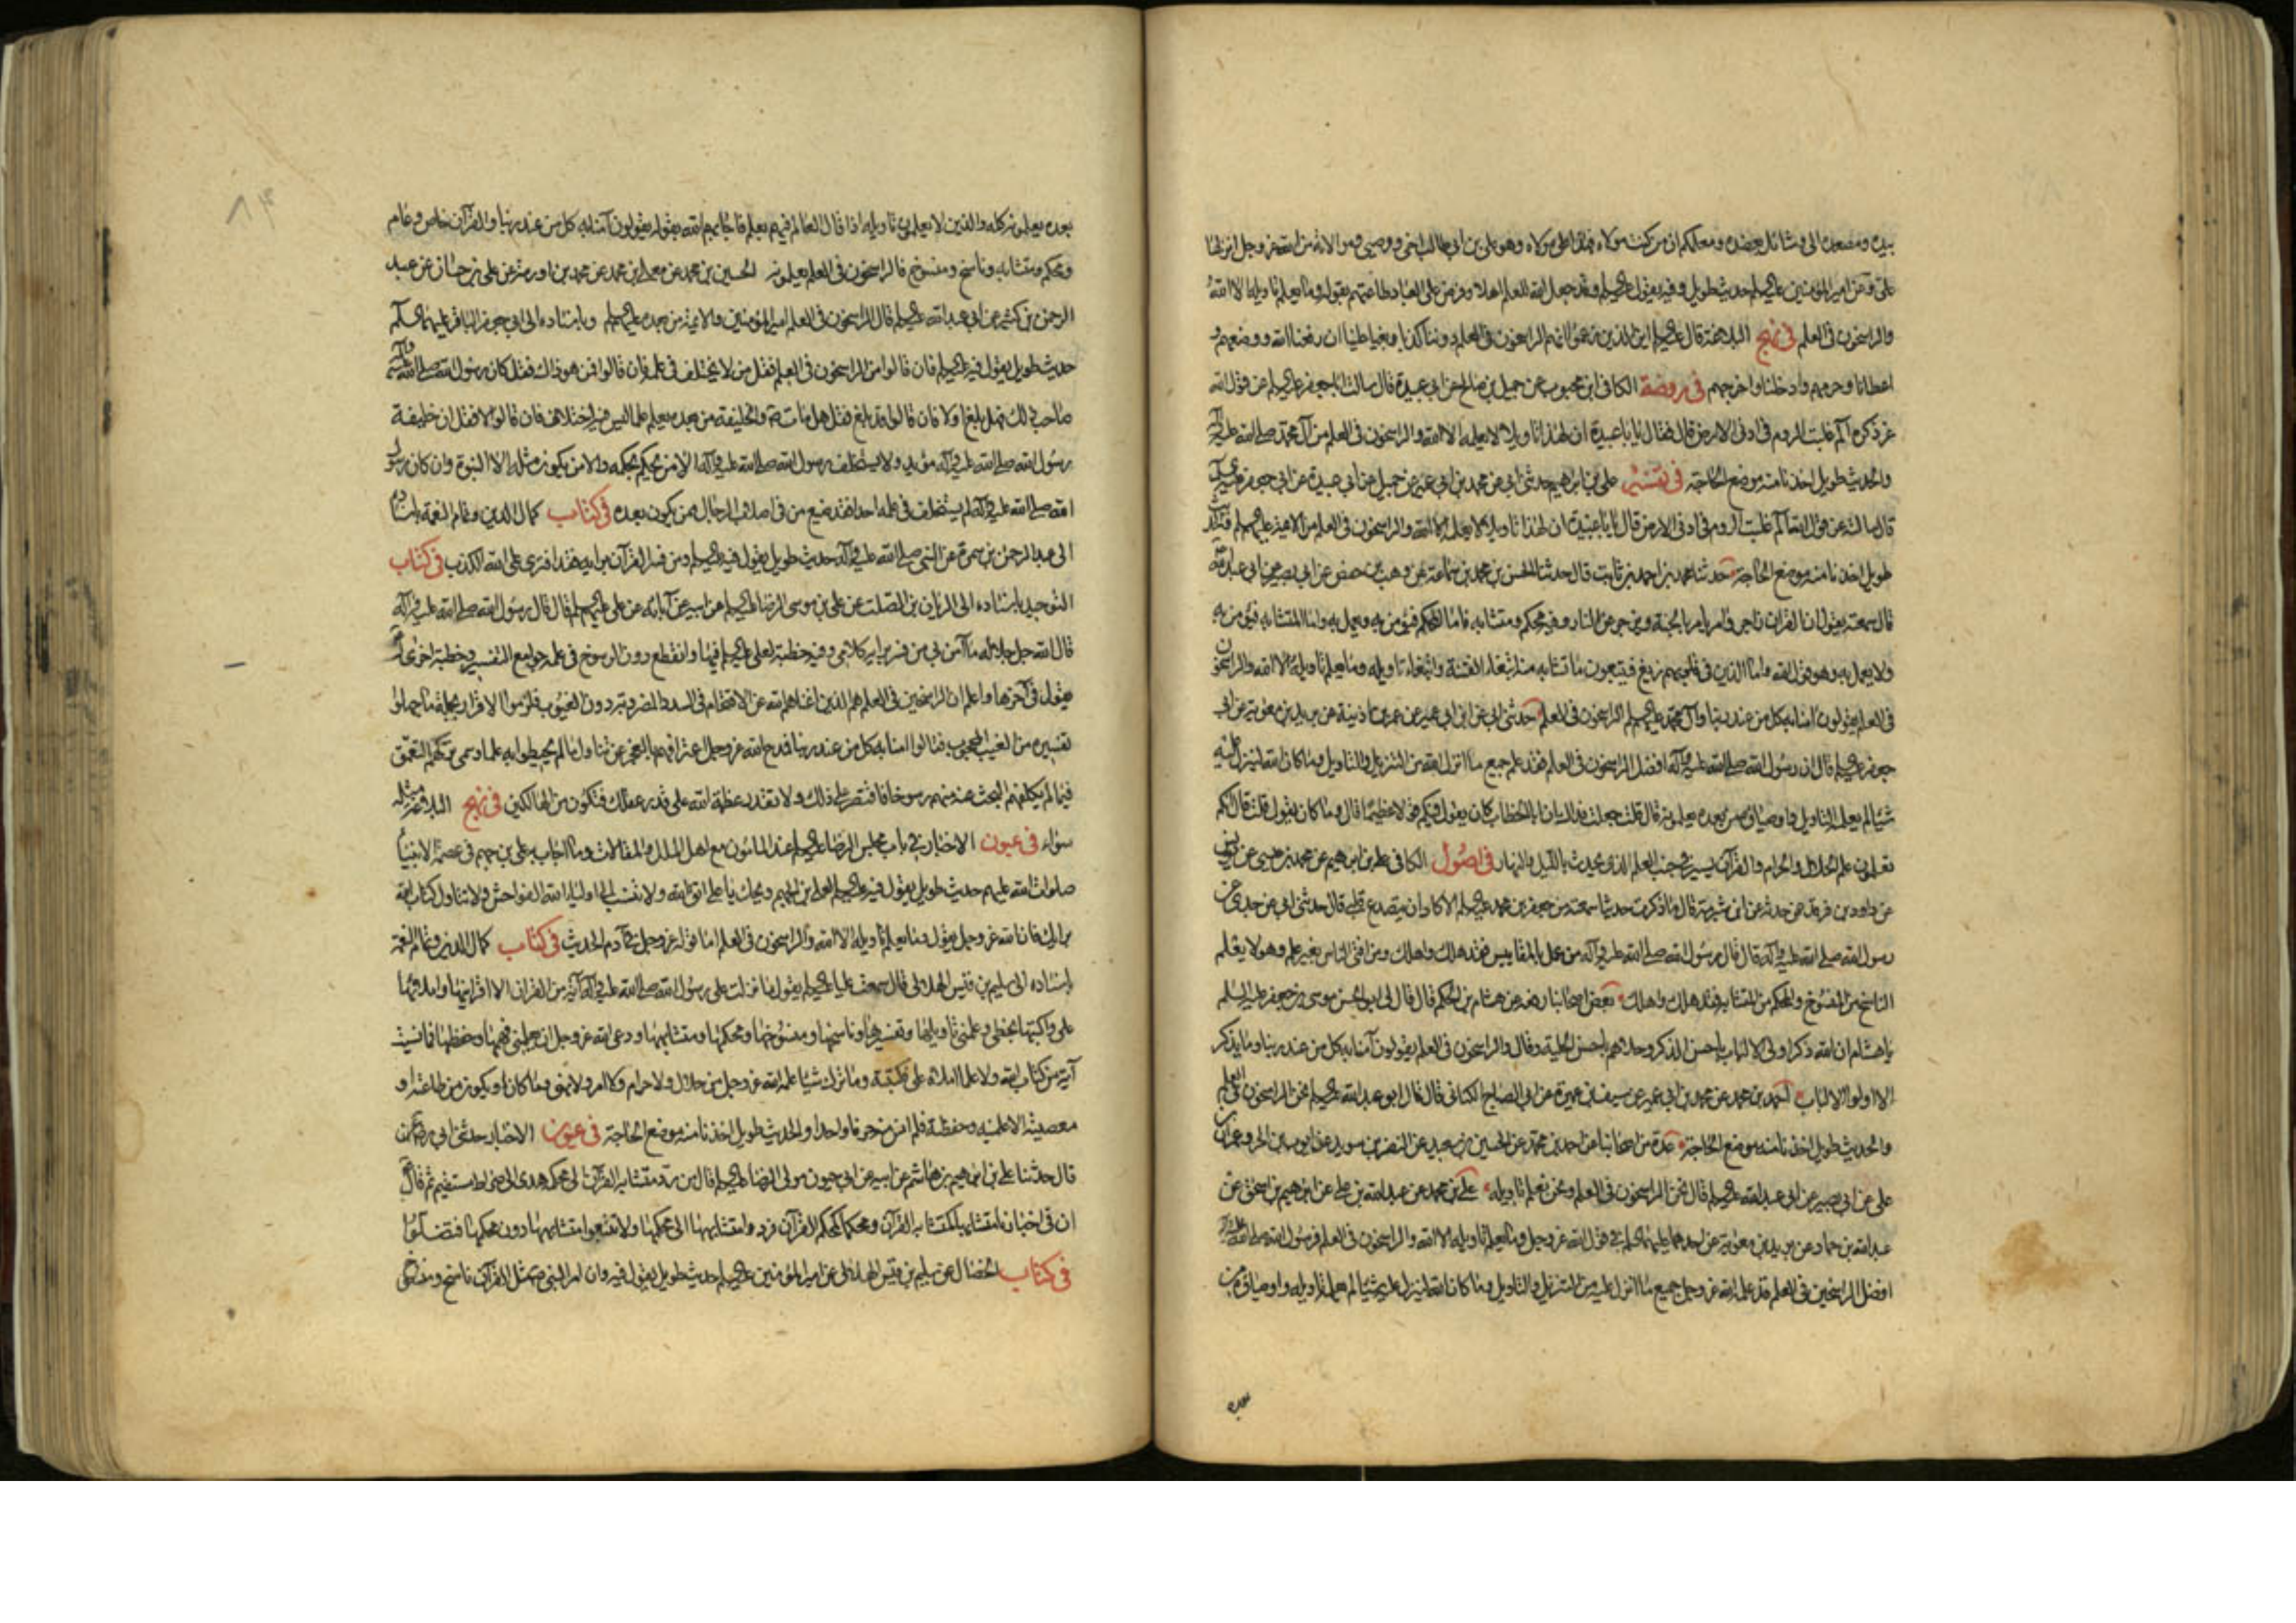 بيده ومصعده الى وشائل بعضده ومعلمكم ان من كنت مولاه فهذا علي مولاه وهو علي بن ابي طالب اخي ووصيي وموالاته من الله عز وجل انزلها
علي وعن امير المؤمنين عليه السلام حديث طويل وفيه يقول عليه السلام وقد جعل الله للعلم اهلا وفرض على العباد طاعتهم بقوله وما يعلم تاويله الا الله
والراسخون في العلم في نهج البلاغة قال عليه السلام اين الذين زعموا انهم الراسخون في العلم دوننا كذبا وبغيا علينا ان رفعنا الله ووضعهم و
اعطانا وحرمهم وادخلنا واخرجهم في روضة الكافي ابن محبوب عن جميل بن صالح عن ابي عبيدة قال سالت ابا جعفر عليه السلام عن قول الله
عز ذكره الم غلبت الروم في ادنى الارض قال فقال يا با عبيدة ان لهذا تاويلا لا يعلمه الا الله والراسخون في العلم من آل محمد صلى الله عليه وآله
والحديث طويل اخذنا منه موضع الحاجة في تفسير علي بن ابراهيم حدثني ابي عن محمد بن ابي عمير عن جميل عن ابي عبيدة عن ابي جعفر عليه السلام
قال سالته عن قول الله الم غلبت الروم في ادنى الارض قال يا با عبيدة ان لهذا تاويلا لا يعلمه الا الله والراسخون في العلم من الائمة عليهم السلام والحديث
طويل اخذنا منه موضع الحاجة حدثنا محمد بن احمد بن ثابت قال حدثنا الحسن بن محمد بن سماعة عن وهيب بن حفص عن ابي بصير عن ابي عبد الله
قال سمعته يقول ان القرآن زاجر وآمر يامر بالجنة ويزجر عن النار وفيه محكم ومتشابه فاما المحكم فيؤمن به ويعمل به واما المتشابه فيؤمن به
ولا يعمل به وهو قول الله واما الذين في قلوبهم زيغ فيتبعون ما تشابه منه ابتغاء الفتنة وابتغاء تاويله وما يعلم تاويله الا الله والراسخون
في العلم يقولون آمنا به كل من عند ربنا وآل محمد عليهم السلام الراسخون في العلم حدثني ابي عن ابن ابي عمير عن عمر بن اذينة عن بريد بن معوية عن ابي
جعفر عليه السلام قال ان رسول الله صلى الله عليه وآله افضل الراسخون في العلم فقد علم جميع ما انزل الله من التنزيل والتاويل وما كان الله لينزل عليه
شيئا لم يعلمه التاويل واوصياؤه من بعده يعلمونه قال قلت جعلت فداك ان ابا الخطاب كان يقول فيكم قولا عظيما قال وما كان يقول قلت قال انكم
تعلمون علم الحلال والحرام والقرآن يسير في جنب العلم الذي يحدث بالليل والنهار في اصول الكافي علي بن ابراهيم عن محمد بن عيسى عن يونس
عن داود بن فرقد عمن حدثه عن ابن شبرمة قال ما ذكرت حديثا سمعته من جعفر بن محمد عليه السلام الا كاد ان يتصدع قلبي قال حدثني ابي عن جدي عن
رسول الله صلى الله عليه وآله قال قال رسول الله صلى الله عليه وآله من عمل بالمقاييس فقد هلك واهلك ومن افتى الناس بغير علم وهو لا يعلم
الناسخ من المنسوخ والمحكم من المتشابه فقد هلك واهلك بعض اصحابنا رفعه عن هشام بن الحكم قال قال لي ابو الحسن موسى بن جعفر عليه السلم
يا هشام ان الله ذكر اولي الالباب باحسن الذكر وحلاهم باحسن الحلية وقال والراسخون في العلم يقولون آمنا به كل من عند ربنا وما يذكر
الا اولوا الالباب احمد بن محمد عن محمد بن ابي عمير عن سيف بن عميرة عن ابي الصباح الكناني قال قال ابو عبد الله عليه السلام نحن الراسخون في العلم
والحديث طويل اخذنا منه موضع الحاجة عدة من اصحابنا عن احمد بن محمد عن الحسين بن سعيد عن النضر بن سويد عن ايوب بن الحر وعمران بن
علي عن ابي بصير عن ابي عبد الله عليه السلام قال نحن الراسخون في العلم ونحن نعلم تاويله علي بن محمد عن عبد الله بن علي عن ابراهيم بن اسحق عن
عبد الله بن حماد عن بريد بن معوية عن احدهما عليهما السلام في قول الله عز وجل وما يعلم تاويله الا الله والراسخون في العلم فرسول الله صلى الله عليه وآله
افضل الراسخين في العلم قد علمه الله عز وجل جميع ما انزل عليه من التنزيل والتاويل وما كان الله لينزل عليه شيئا لم يعلمه تاويله واوصياؤه من
بعده
بعده يعلمونه كله والذين لا يعلمون تاويله اذا قال العالم فيهم بعلم فاجابهم الله بقوله يقولون آمنا به كل من عند ربنا والقرآن خاص وعام
ومحكم ومتشابه وناسخ ومنسوخ فالراسخون في العلم يعلمونه الحسين بن محمد عن معلى بن محمد عن محمد بن اورمة عن علي بن حسان عن عبد
الرحمن بن كثير عن ابي عبد الله عليه السلام قال الراسخون في العلم امير المؤمنين والائمة من بعده عليهم السلام وباسناده الى ابي جعفر الباقر عليهما السلام
حديث طويل يقول فيه عليه السلام فان قالوا من الراسخون في العلم فقل من لا يختلف في علمه فان قالوا فمن هو ذاك فقل كان رسول الله صلى الله عليه وآله
صاحب ذلك فهل بلغ او لا فان قالوا قد بلغ فقل هل مات صلى الله عليه وآله والخليفة من بعده يعلم علما ليس فيه اختلاف فان قالوا لا فقل ان خليفة
رسول الله صلى الله عليه وآله مؤيد ولا يستخلف رسول الله صلى الله عليه وآله الا من يحكم بحكمه والا من يكون مثله الا النبوة وان كان رسول
الله صلى الله عليه وآله لم يستخلف في علمه احدا فقد ضيع من في اصلاب الرجال ممن يكون بعده في كتاب كمال الدين وتمام النعمة باسناده
الى عبد الرحمن بن سمرة عن النبي صلى الله عليه وآله حديث طويل يقول فيه عليه السلام ومن فسر القرآن برايه فقد افترى على الله الكذب في كتاب
التوحيد باسناده الى الريان بن الصلت عن علي بن موسى الرضا عليه السلام عن ابيه عن آبائه عن علي عليهم السلام قال قال رسول الله صلى الله عليه وآله
قال الله جل جلاله ما آمن بي من فسر برايه كلامي وفيه خطبة لعلي عليه السلام فيها وانقطع دون الرسوخ في علمه جوامع التفسير وخطبة اخرى له
يقول في آخرها واعلم ان الراسخين في العلم هم الذين اغناهم الله عن الاقتحام في السدد المضروبة دون الغيوب فلزموا الاقرار بجملة ما جهلوا
تفسيره من الغيب المحجوب فقالوا آمنا به كل من عند ربنا فمدح الله عز وجل اعترافهم بالعجز عن تناول ما لم يحيطوا به علما وسمى تركهم التعمق
فيما لم يكلفهم البحث عنه منهم رسوخا فاقتصر على ذلك ولا تقدر عظمة الله على قدر عقلك فتكون من الهالكين في نهج البلاغة مثله
سواء في عيون الاخبار في باب مجلس الرضا عليه السلام عند المامون مع اهل الملل والمقالات وما اجاب به علي بن جهم في عصمة الانبياء
صلوات الله عليهم حديث طويل يقول فيه عليه السلام لعلي بن الجهم ويحك يا علي اتق الله ولا تنسب الى اولياء الله الفواحش ولا تتاول كتاب الله
برايك فان الله عز وجل يقول وما يعلم تاويله الا الله والراسخون في العلم اما قوله عز وجل في آدم الحديث في كتاب كمال الدين وتمام النعمة
باسناده الى سليم بن قيس الهلالي قال سمعت عليا عليه السلام يقول ما نزلت على رسول الله صلى الله عليه وآله آية من القرآن الا اقرانيها واملاها
علي واكتبها بخطي وعلمني تاويلها وتفسيرها وناسخها ومنسوخها ومحكمها ومتشابهها ودعا الله عز وجل ان يعلمني فهمها وحفظها فما نسيت
آية من كتاب الله ولا علما املاه علي فكتبته وما ترك شيئا علمه الله عز وجل من حلال ولا حرام ولا امر ولا نهي وما كان او يكون من طاعة او
معصية الا علمنيه وحفظته فلم انس منه حرفا واحدا والحديث طويل اخذنا منه موضع الحاجة في عيون الاخبار حدثني ابي رحمه الله
قال حدثنا علي بن ابراهيم بن هاشم عن ابيه عن ابي حيون مولى الرضا عليه السلام قال من رد متشابه القرآن الى محكمه هدي الى صراط مستقيم ثم قال
ان في اخبارنا متشابها كمتشابه القرآن ومحكما كمحكم القرآن فردوا متشابهها الى محكمها ولا تتبعوا متشابهها دون محكمها فتضلوا
في كتاب الخصال عن سليم بن قيس الهلالي عن امير المؤمنين عليه السلام حديث طويل يقول فيه وان امر النبي صلى الله عليه وآله مثل القرآن ناسخ ومنسوخ